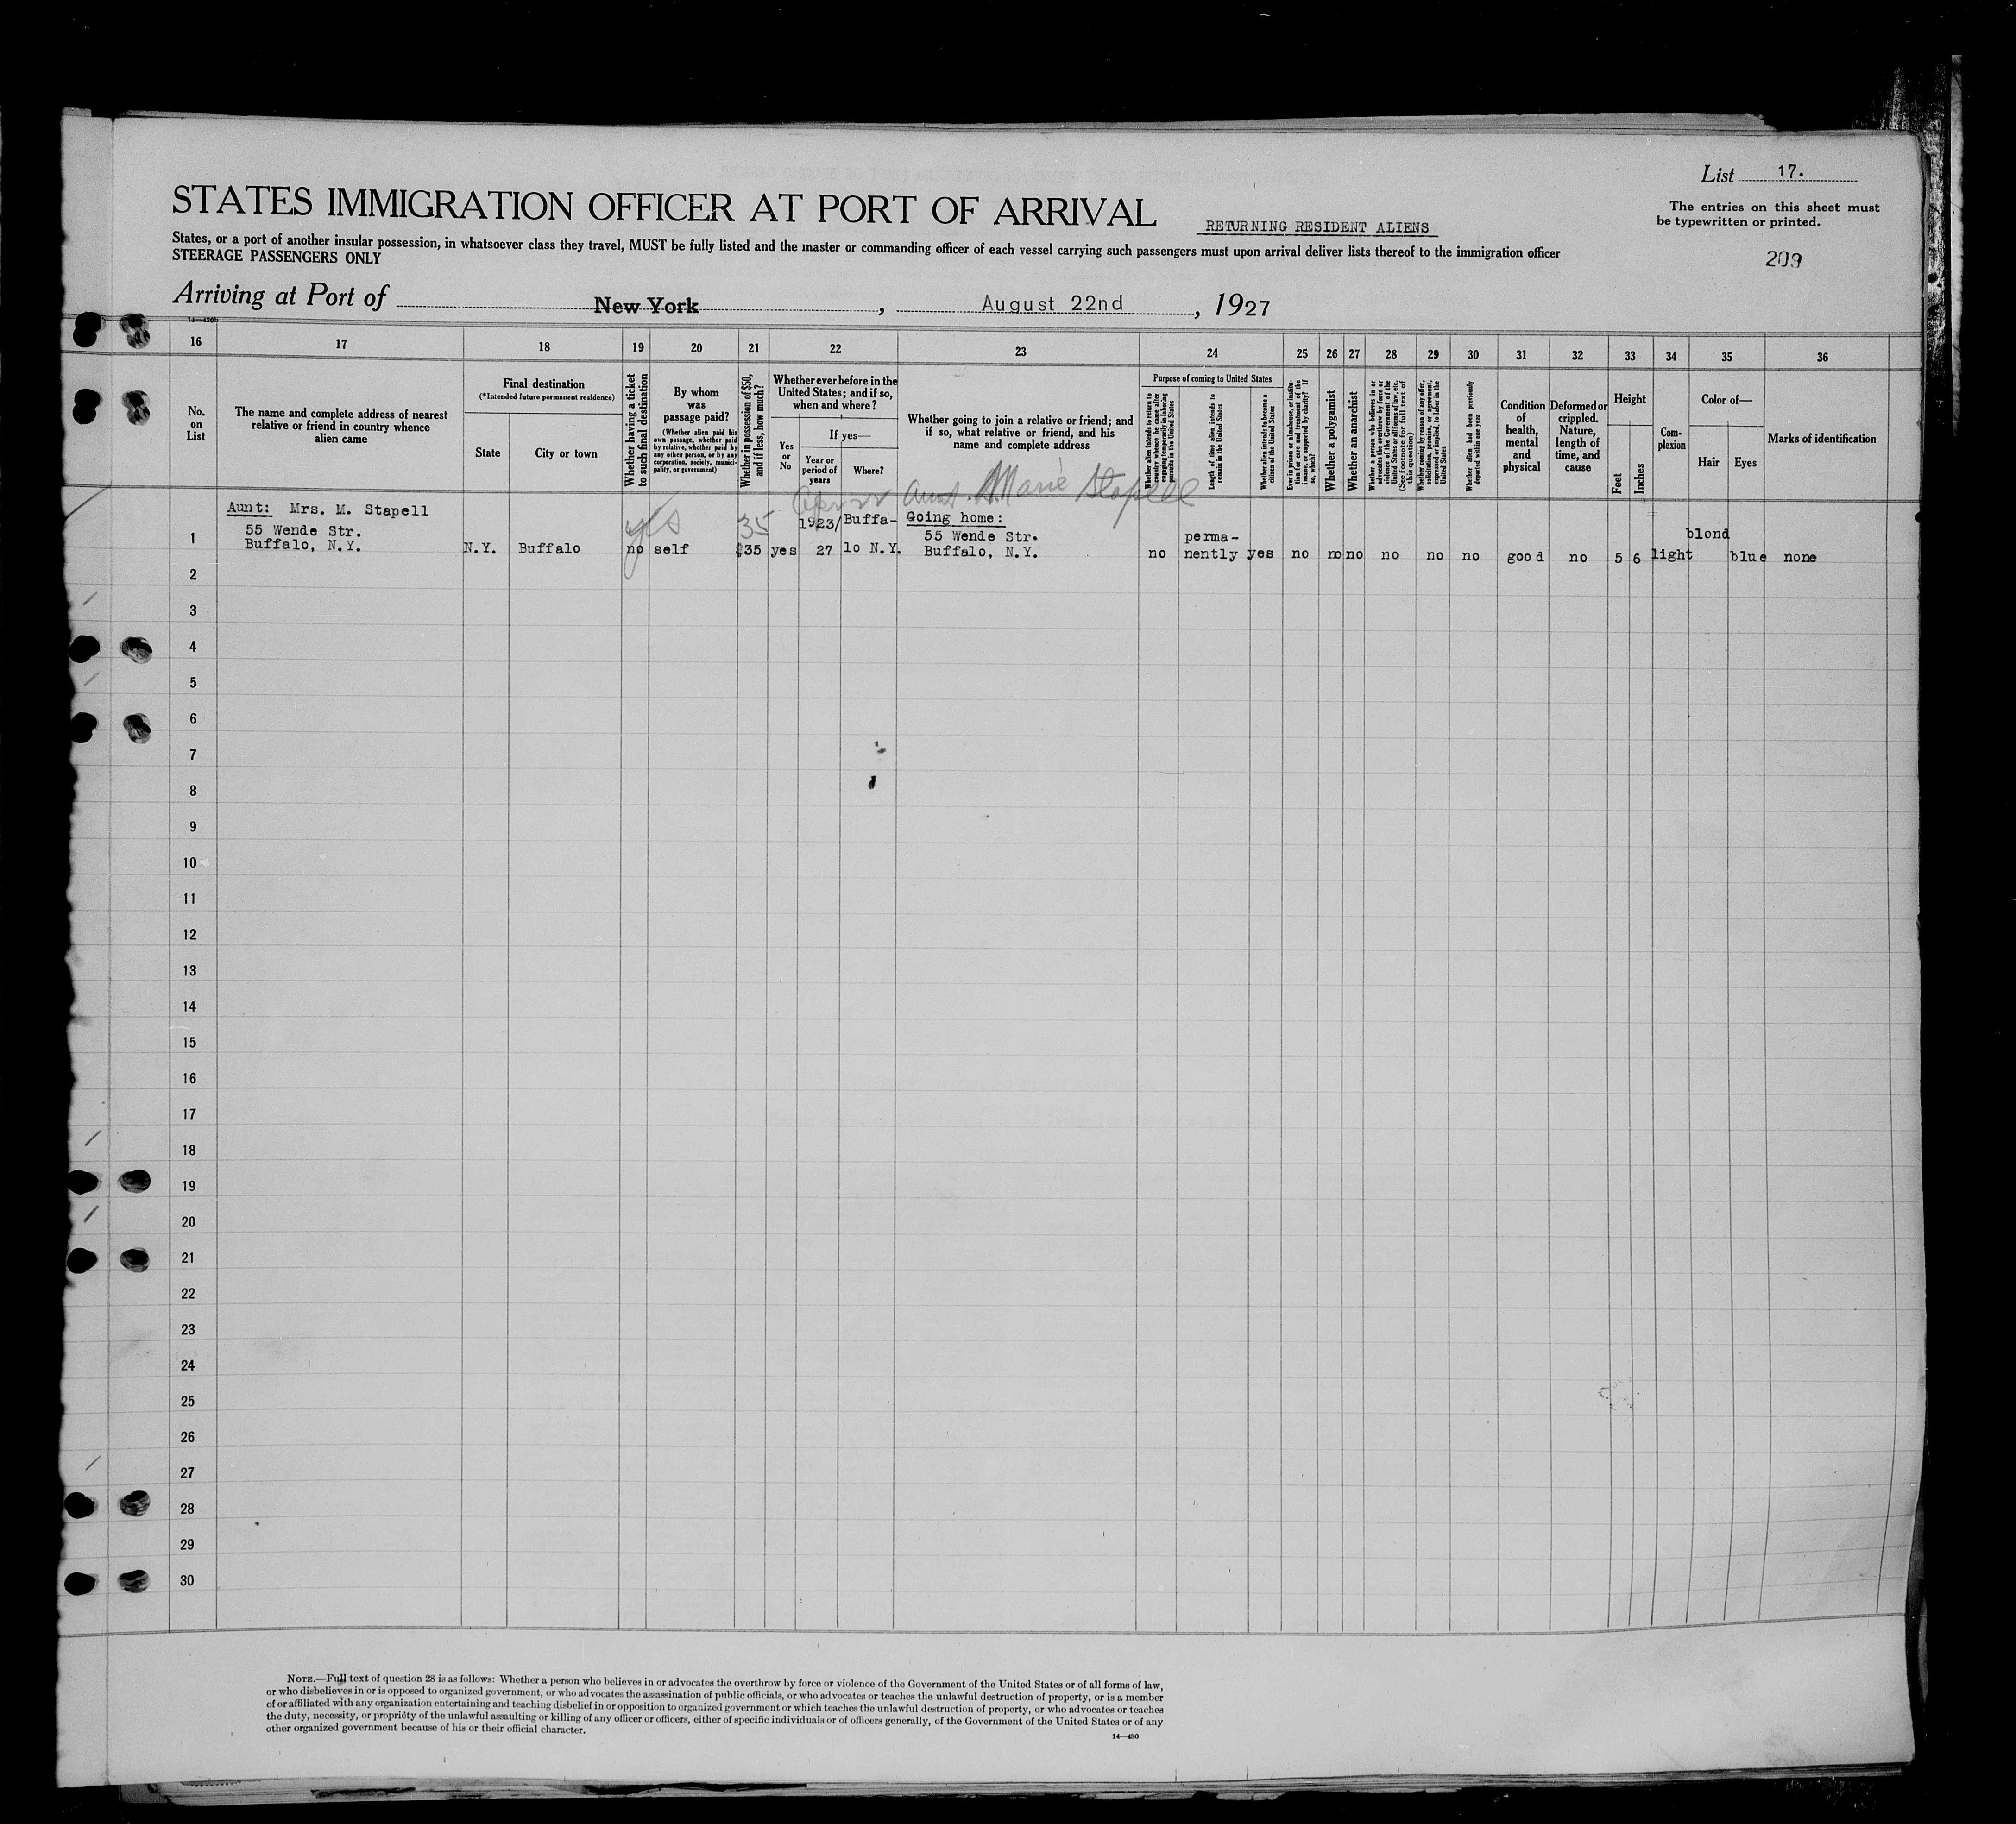 List 17.
STATES IMMIGRATION OFFICER AT PORT OF ARRIVAL
RETURNING RESIDENT ALIENS
The entries on this sheet must
be typewritten or printed.
States, or a port of another insular possession, in whatsoever class they travel, MUST be fully listed and the master or commanding officer of each vessel carrying such passengers must upon arrival deliver lists thereof to the immigration officer
STEERAGE PASSENGERS ONLY
209
Arriving at Port of New York, August 22nd, 1927
14—430b
16 17 18 19 20 21 22 23 24 25 26 27 28 29 30 31 32 33 34 35 36
No.
on
List
The name and complete address of nearest
relative or friend in country whence
alien came
Final destination
(*Intended future permanent residence)
State
City or town
Whether having a ticket
to such final destination
By whom
was
passage paid?
(Whether alien paid his
own passage, whether paid
by relative, whether paid by
any other person, or by any
corporation, society, munici-
pality, or government)
Whether in possession of $50,
and if less, how much?
Whether ever before in the
United States; and if so,
when and where?
Yes
or
No
If yes—
Year or
period of
years
Where?
Whether going to join a relative or friend; and
if so, what relative or friend, and his
name and complete address
Purpose of coming to United States
Whether alien intends to return to
country whence he came after
engaging temporarily in laboring
pursuits in the United States
Length of time alien intends to
remain in the United States
Whether alien intends to become a
citizen of the United States
Ever in prison or almshouse, or institu-
tion for care and treatment of the
insane, or supported by charity? If
so, which?
Whether a polygamist
Whether an anarchist
Whether a person who believes in or
advocates the overthrow by force or
violence of the Government of the
United States or all forms of law, etc.
(See footnote for full text of
this question)
Whether coming by reason of any offer,
solicitation, promise, or agreement,
expressed or implied, to labor in the
United States
Whether alien had been previously
deported within one year
Condition
of
health,
mental
and
physical
Deformed or
crippled.
Nature,
length of
time, and
cause
Height
Feet
Inches
Com-
plexion
Color of—
Hair
Eyes
Marks of identification
Aunt Marie Stapell
1
Aunt: Mrs. M. Stapell
55 Wende Str.
Buffalo, N.Y.
N.Y.
Buffalo
yes
no
self
35
$35
yes
1923/
27
Buffa-
lo N.Y.
Going home:
55 Wende Str.
Buffalo, N.Y.
no
perma-
nently
yes
no
no
no
no
no
no
good
no
5
6
light
blond
blue
none
2
3
4
5
6
7
8
9
10
11
12
13
14
15
16
17
18
19
20
21
22
23
24
25
26
27
28
29
30
NOTE.—Full text of question 28 is as follows: Whether a person who believes in or advocates the overthrow by force or violence of the Government of the United States or of all forms of law,
or who disbelieves in or is opposed to organized government, or who advocates the assassination of public officials, or who advocates or teaches the unlawful destruction of property, or is a member
of or affiliated with any organization entertaining and teaching disbelief in or opposition to organized government or which teaches the unlawful destruction of property, or who advocates or teaches
the duty, necessity, or propriety of the unlawful assaulting or killing of any officer or officers, either of specific individuals or of officers generally, of the Government of the United States or of any
other organized government because of his or their official character.
14—430